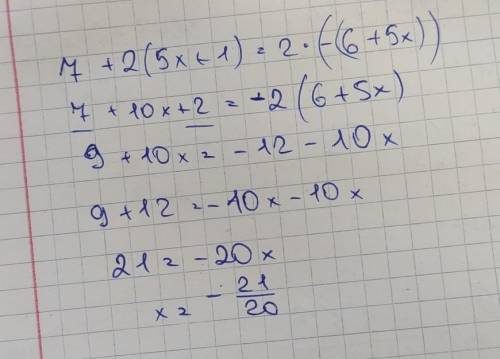 7 + 2(5x + 1) = 2 · (-(6 + 5x))
7 + 10x + 2 = -2(6 + 5x)
9 + 10x = -12 - 10x
9 + 12 = -10x - 10x
21 = -20x
x = -21/20